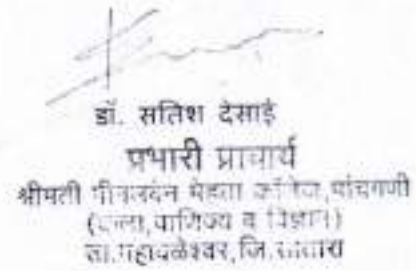 डॉ. सतिश देसाई
प्रभारी प्राचार्य
श्रीमती मेहता कॉलेज,पांचगणी
(कला,वाणिज्य व विज्ञान)
ता.महाबळेश्वर,जि.सातारा